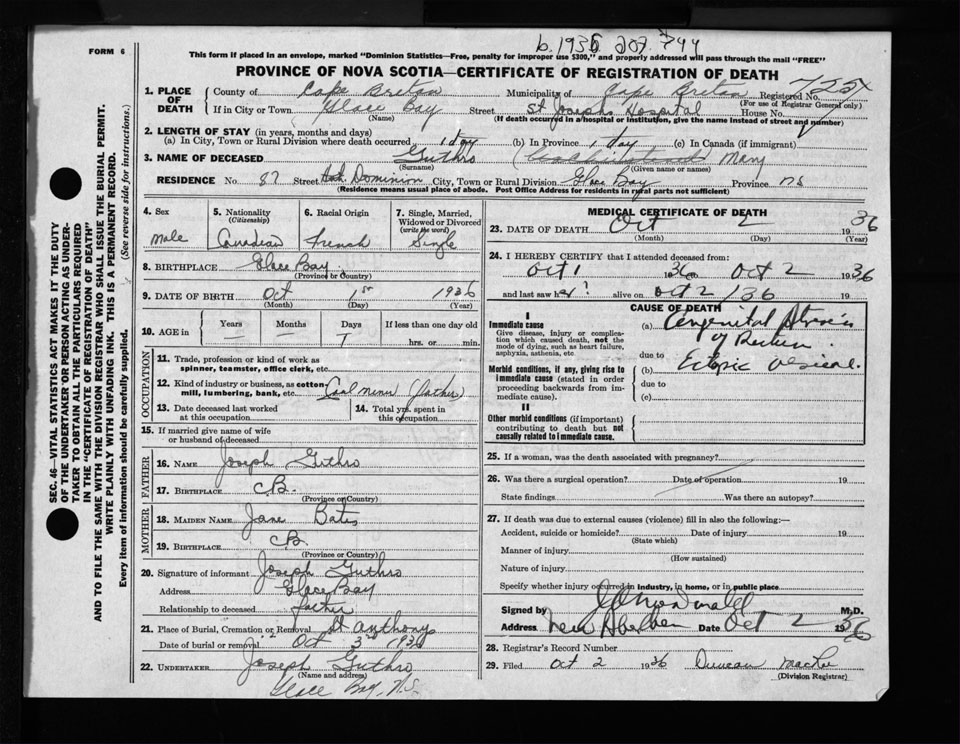 b. 1936 207. 744
FORM 6
This form if placed in an envelope, marked "Dominion Statistics—Free, penalty for improper use $300," and properly addressed will pass through the mail "FREE"
PROVINCE OF NOVA SCOTIA—CERTIFICATE OF REGISTRATION OF DEATH
1. PLACE OF DEATH County of Cape Breton Municipality of Cape Breton Registered No.
(For use of Registrar General only)
If in City or Town Glace Bay Street St Josephs Hospital House No.
(Name) (If death occurred in a hospital or institution, give the name instead of street and number)
2. LENGTH OF STAY (in years, months and days)
(a) In City, Town or Rural Division where death occurred 1 day (b) In Province 1 day (c) In Canada (if immigrant)
3. NAME OF DECEASED Guthro Mary
(Surname) (Given name or names)
RESIDENCE No. 87 Street Dominion City, Town or Rural Division Glace Bay Province NS
(Residence means usual place of abode. Post Office Address for residents in rural parts not sufficient)
4. Sex male
5. Nationality (Citizenship) Canadian
6. Racial Origin French
7. Single, Married, Widowed or Divorced (write the word) Single
8. BIRTHPLACE Glace Bay
(Province or Country)
9. DATE OF BIRTH Oct 1st 1936
(Month) (Day) (Year)
10. AGE in Years — Months — Days 1 If less than one day old hrs. or min.
OCCUPATION
11. Trade, profession or kind of work as spinner, teamster, office clerk, etc.
12. Kind of industry or business, as cotton mill, lumbering, bank, etc. Coal Miner (father)
13. Date deceased last worked at this occupation
14. Total yrs. spent in this occupation
15. If married give name of wife or husband of deceased
FATHER
16. NAME Joseph Guthro
17. BIRTHPLACE C.B.
(Province or Country)
MOTHER
18. MAIDEN NAME Jane Bates
19. BIRTHPLACE C.B.
(Province or Country)
20. Signature of informant Joseph Guthro
Address Glace Bay
Relationship to deceased father
21. Place of Burial, Cremation or Removal St Anthonys
Date of burial or removal Oct 3rd 1936
22. UNDERTAKER Joseph Guthro
(Name and address)
Glace Bay, N.S.
MEDICAL CERTIFICATE OF DEATH
23. DATE OF DEATH Oct 2 1936
(Month) (Day) (Year)
24. I HEREBY CERTIFY that I attended deceased from:
Oct 1 1936 to Oct 2 1936
and last saw her alive on Oct 2 /36 19
CAUSE OF DEATH
I
Immediate cause
Give disease, injury or complication which caused death, not the mode of dying, such as heart failure, asphyxia, asthenia, etc
(a) Congenital Atresia
of Rectum
due to
Morbid conditions, if any, giving rise to immediate cause (stated in order proceeding backwards from immediate cause).
(b) Ectopic
due to
(c)
II
Other morbid conditions (if important) contributing to death but not causally related to immediate cause.
25. If a woman, was the death associated with pregnancy?
26. Was there a surgical operation? Date of operation 19
State findings Was there an autopsy?
27. If death was due to external causes (violence) fill in also the following:—
Accident, suicide or homicide? Date of injury 19
(State which)
Manner of injury
(How sustained)
Nature of injury
Specify whether injury occurred in industry, in home, or in public place
Signed by M.D.
Address New Aberdeen Date Oct 2 1936
28. Registrar's Record Number
29. Filed Oct 2 1936 Duncan
(Division Registrar)
SEC. 46—VITAL STATISTICS ACT MAKES IT THE DUTY
OF THE UNDERTAKER OR PERSON ACTING AS UNDER-
TAKER TO OBTAIN ALL THE PARTICULARS REQUIRED
IN THE "CERTIFICATE OF REGISTRATION OF DEATH"
AND TO FILE THE SAME WITH THE DIVISION REGISTRAR WHO SHALL ISSUE THE BURIAL PERMIT.
WRITE PLAINLY WITH UNFADING INK. THIS IS A PERMANENT RECORD.
Every item of information should be carefully supplied. (See reverse side for instructions.)